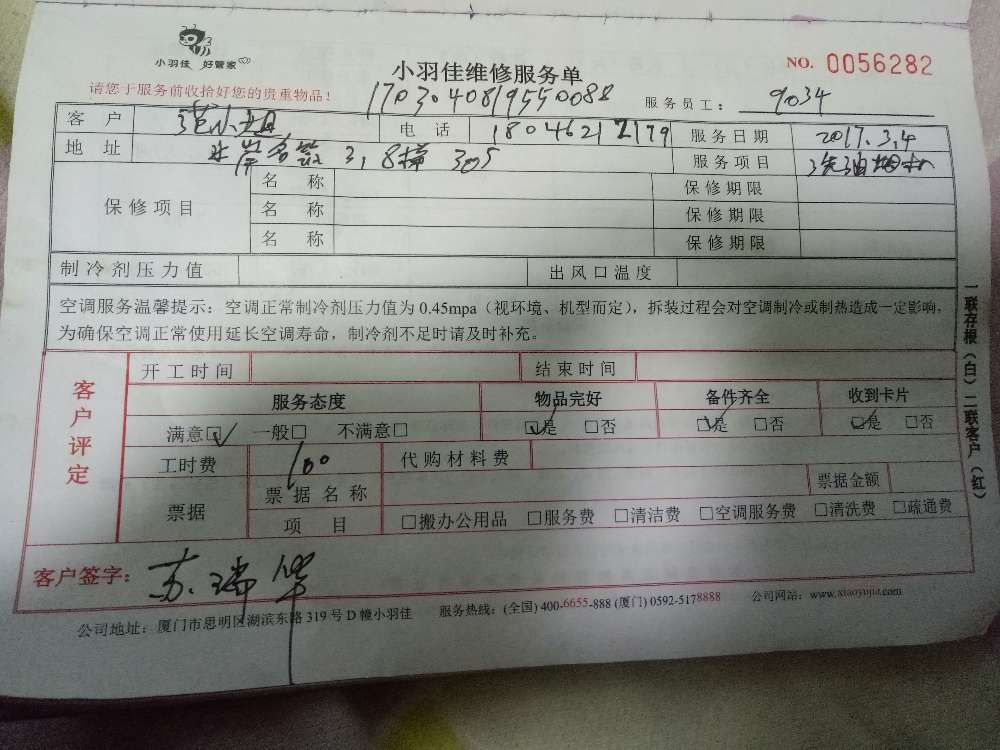 小羽佳 好管家
小羽佳维修服务单
NO. 0056282
请您于服务前收拾好您的贵重物品！
1703040819550088
服务员工： 9034
客 户 范小姐 电 话 18046212179 服务日期 2017.3.4
地 址 水岸名筑 3,8幢 305 服务项目 洗油烟机
保修项目 名 称 保修期限
名 称 保修期限
名 称 保修期限
制冷剂压力值 出风口温度
空调服务温馨提示：空调正常制冷剂压力值为 0.45mpa（视环境、机型而定），拆装过程会对空调制冷或制热造成一定影响，
为确保空调正常使用延长空调寿命，制冷剂不足时请及时补充。
客户评定
开工时间 结束时间
服务态度 物品完好 备件齐全 收到卡片
满意☑ 一般□ 不满意□ ☑是 □否 ☑是 □否 ☑是 □否
工时费 100 代购材料费
票据 票据名称 票据金额
项 目 □搬办公用品 □服务费 □清洁费 □空调服务费 □清洗费 □疏通费
客户签字： 苏瑞
公司地址：厦门市思明区湖滨东路 319 号 D 幢小羽佳 服务热线：(全国) 400-6655-888 (厦门) 0592-5178888 公司网站：www.xiaoyujia.com
一联存根（白）二联客户（红）